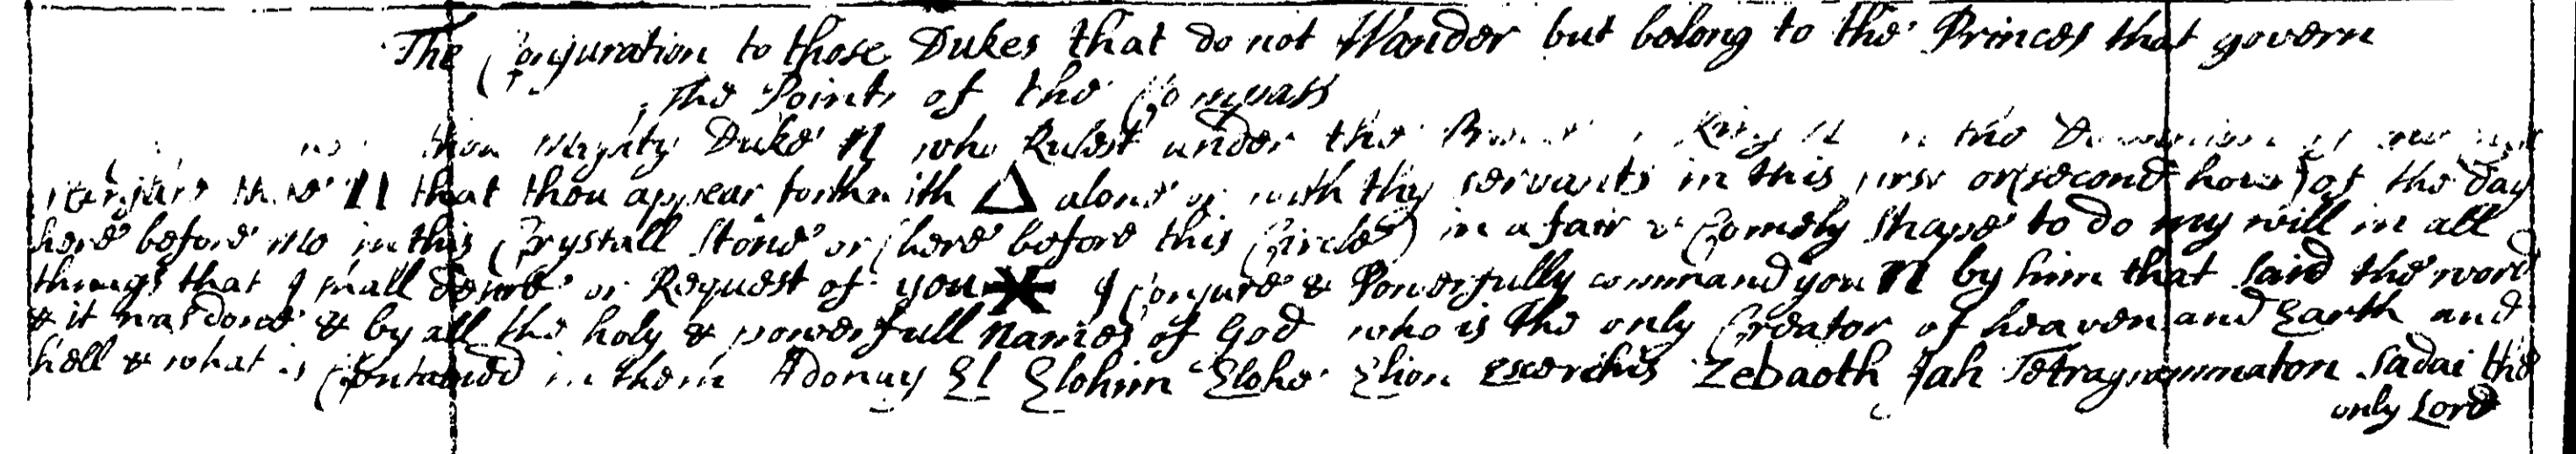 The Conjuration to those Dukes that do not Wander but belong to the Princes that govern
the Points of the Compass
thou Mighty Duke N who Rulest under the King N in the Dominion of
thee N that thou appear forthwith △ alone or with thy servants in this first or (second hour) of the day
here before me in this Crystall Stone or (here before this Circle) in a fair & Comely Shape to do my will in all
things that I shall desire or Request of you I Conjure & Powerfully command you N by him that said the word
& it was done & by all the holy & powerfull names of God who is the only Creator of heaven and Earth and
hell & what is Contained in them Adonay El Elohim Elohe Elion Escerchis Zebaoth Jah Tetragrammaton Sadai the
only Lord